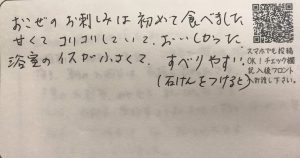 おこぜのお刺しみは初めて食べました
甘くて コリコリしていて、おいしかった。
浴室のイスが小さくて、すべりやすい。
(石けんをつけると)
スマホでも投稿
OK!チェック欄
記入後フロント
へお渡し下さい。